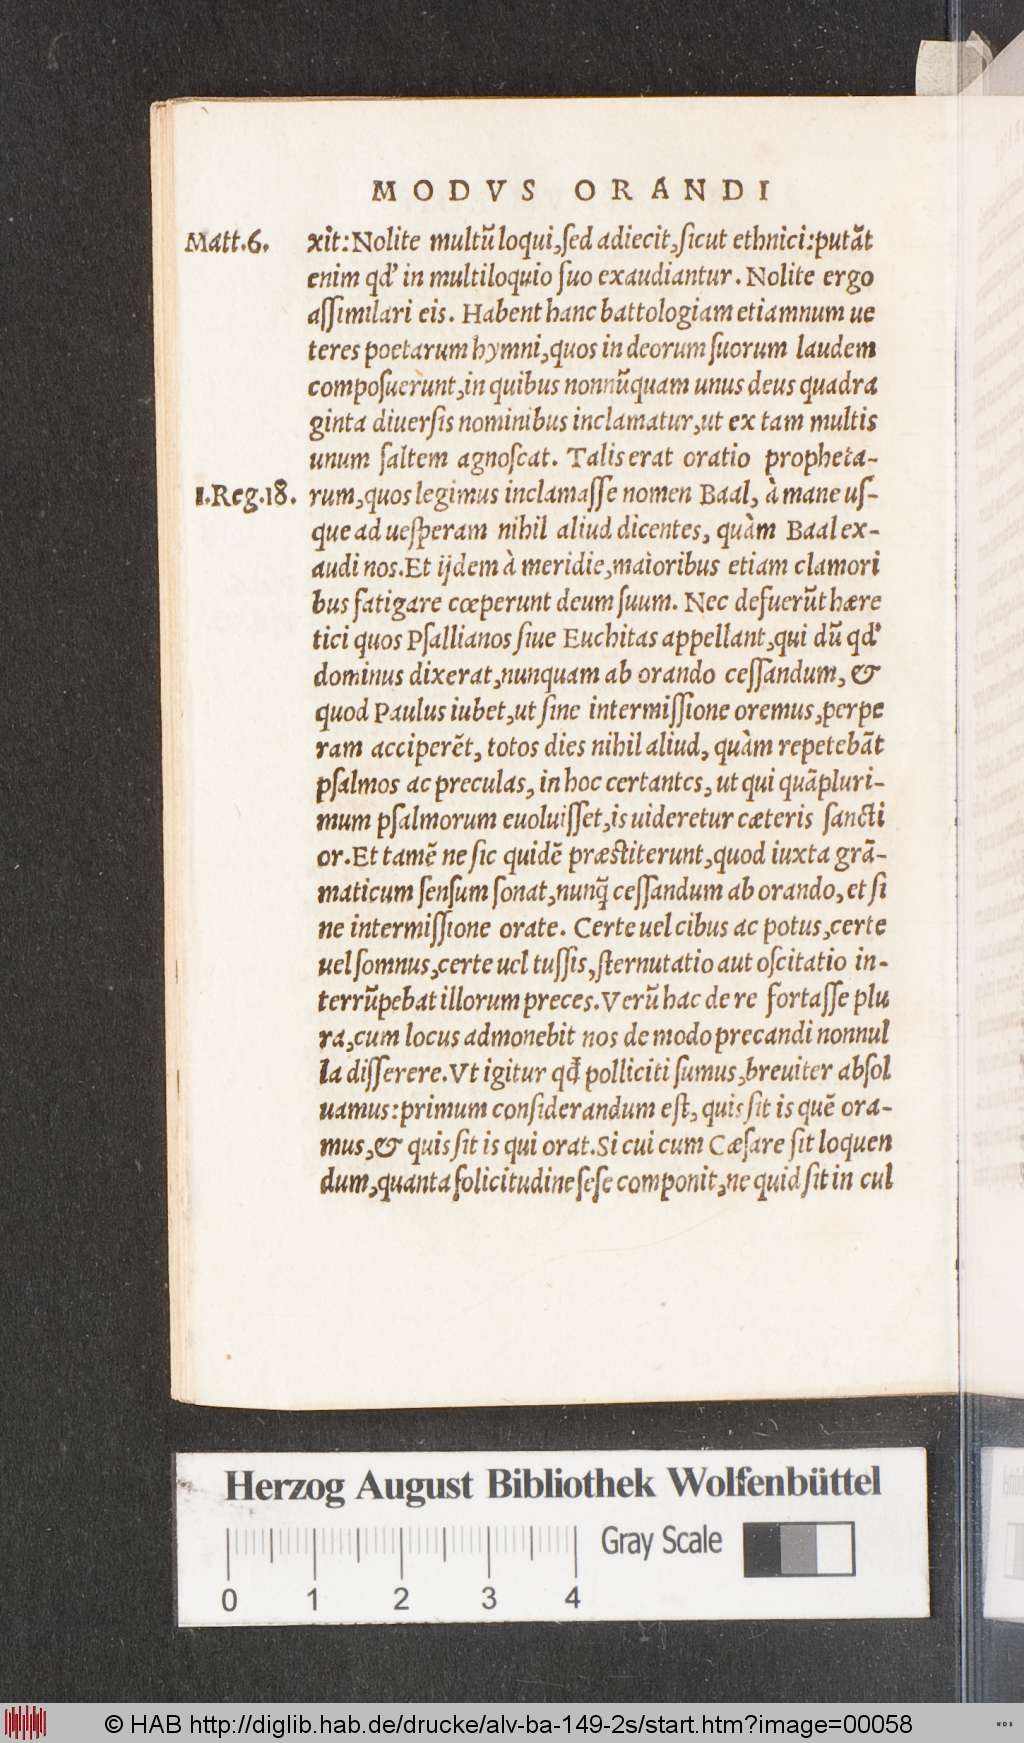 MODVS ORANDI
Matt.6.
xit: Nolite multū loqui, sed adiecit, sicut ethnici: putāt
enim qd' in multiloquio suo exaudiantur. Nolite ergo
assimilari eis. Habent hanc battologiam etiamnum ue
teres poetarum hymni, quos in deorum suorum laudem
composuerunt, in quibus nonnūquam unus deus quadra
ginta diuersis nominibus inclamatur, ut ex tam multis
unum saltem agnoscat. Talis erat oratio propheta-
I.Reg.18.
rum, quos legimus inclamasse nomen Baal, à mane us-
que ad uesperam nihil aliud dicentes, quàm Baal ex-
audi nos. Et ijdem à meridie, maioribus etiam clamori
bus fatigare cœperunt deum suum. Nec defuerūt hære
tici quos Psallianos siue Euchitas appellant, qui dū qd'
dominus dixerat, nunquam ab orando cessandum, &
quod Paulus iubet, ut sine intermissione oremus, perpe
ram acciperēt, totos dies nihil aliud, quàm repetebāt
psalmos ac preculas, in hoc certantes, ut qui quāpluri-
mum psalmorum euoluisset, is uideretur cæteris sancti
or. Et tamē ne sic quidē præstiterunt, quod iuxta grā-
maticum sensum sonat, nunq̄ cessandum ab orando, et si
ne intermissione orate. Certe uel cibus ac potus, certe
uel somnus, certe uel tussis, sternutatio aut oscitatio in-
terrūpebat illorum preces. Verū hac de re fortasse plu
ra, cum locus admonebit nos de modo precandi nonnul
la disserere. Vt igitur qd̄ polliciti sumus, breuiter absol
uamus: primum considerandum est, quis sit is quē ora-
mus, & quis sit is qui orat. Si cui cum Cæsare sit loquen
dum, quanta solicitudine sese componit, ne quid sit in cul
Herzog August Bibliothek Wolfenbüttel
Gray Scale
0 1 2 3 4
© HAB http://diglib.hab.de/drucke/alv-ba-149-2s/start.htm?image=00058